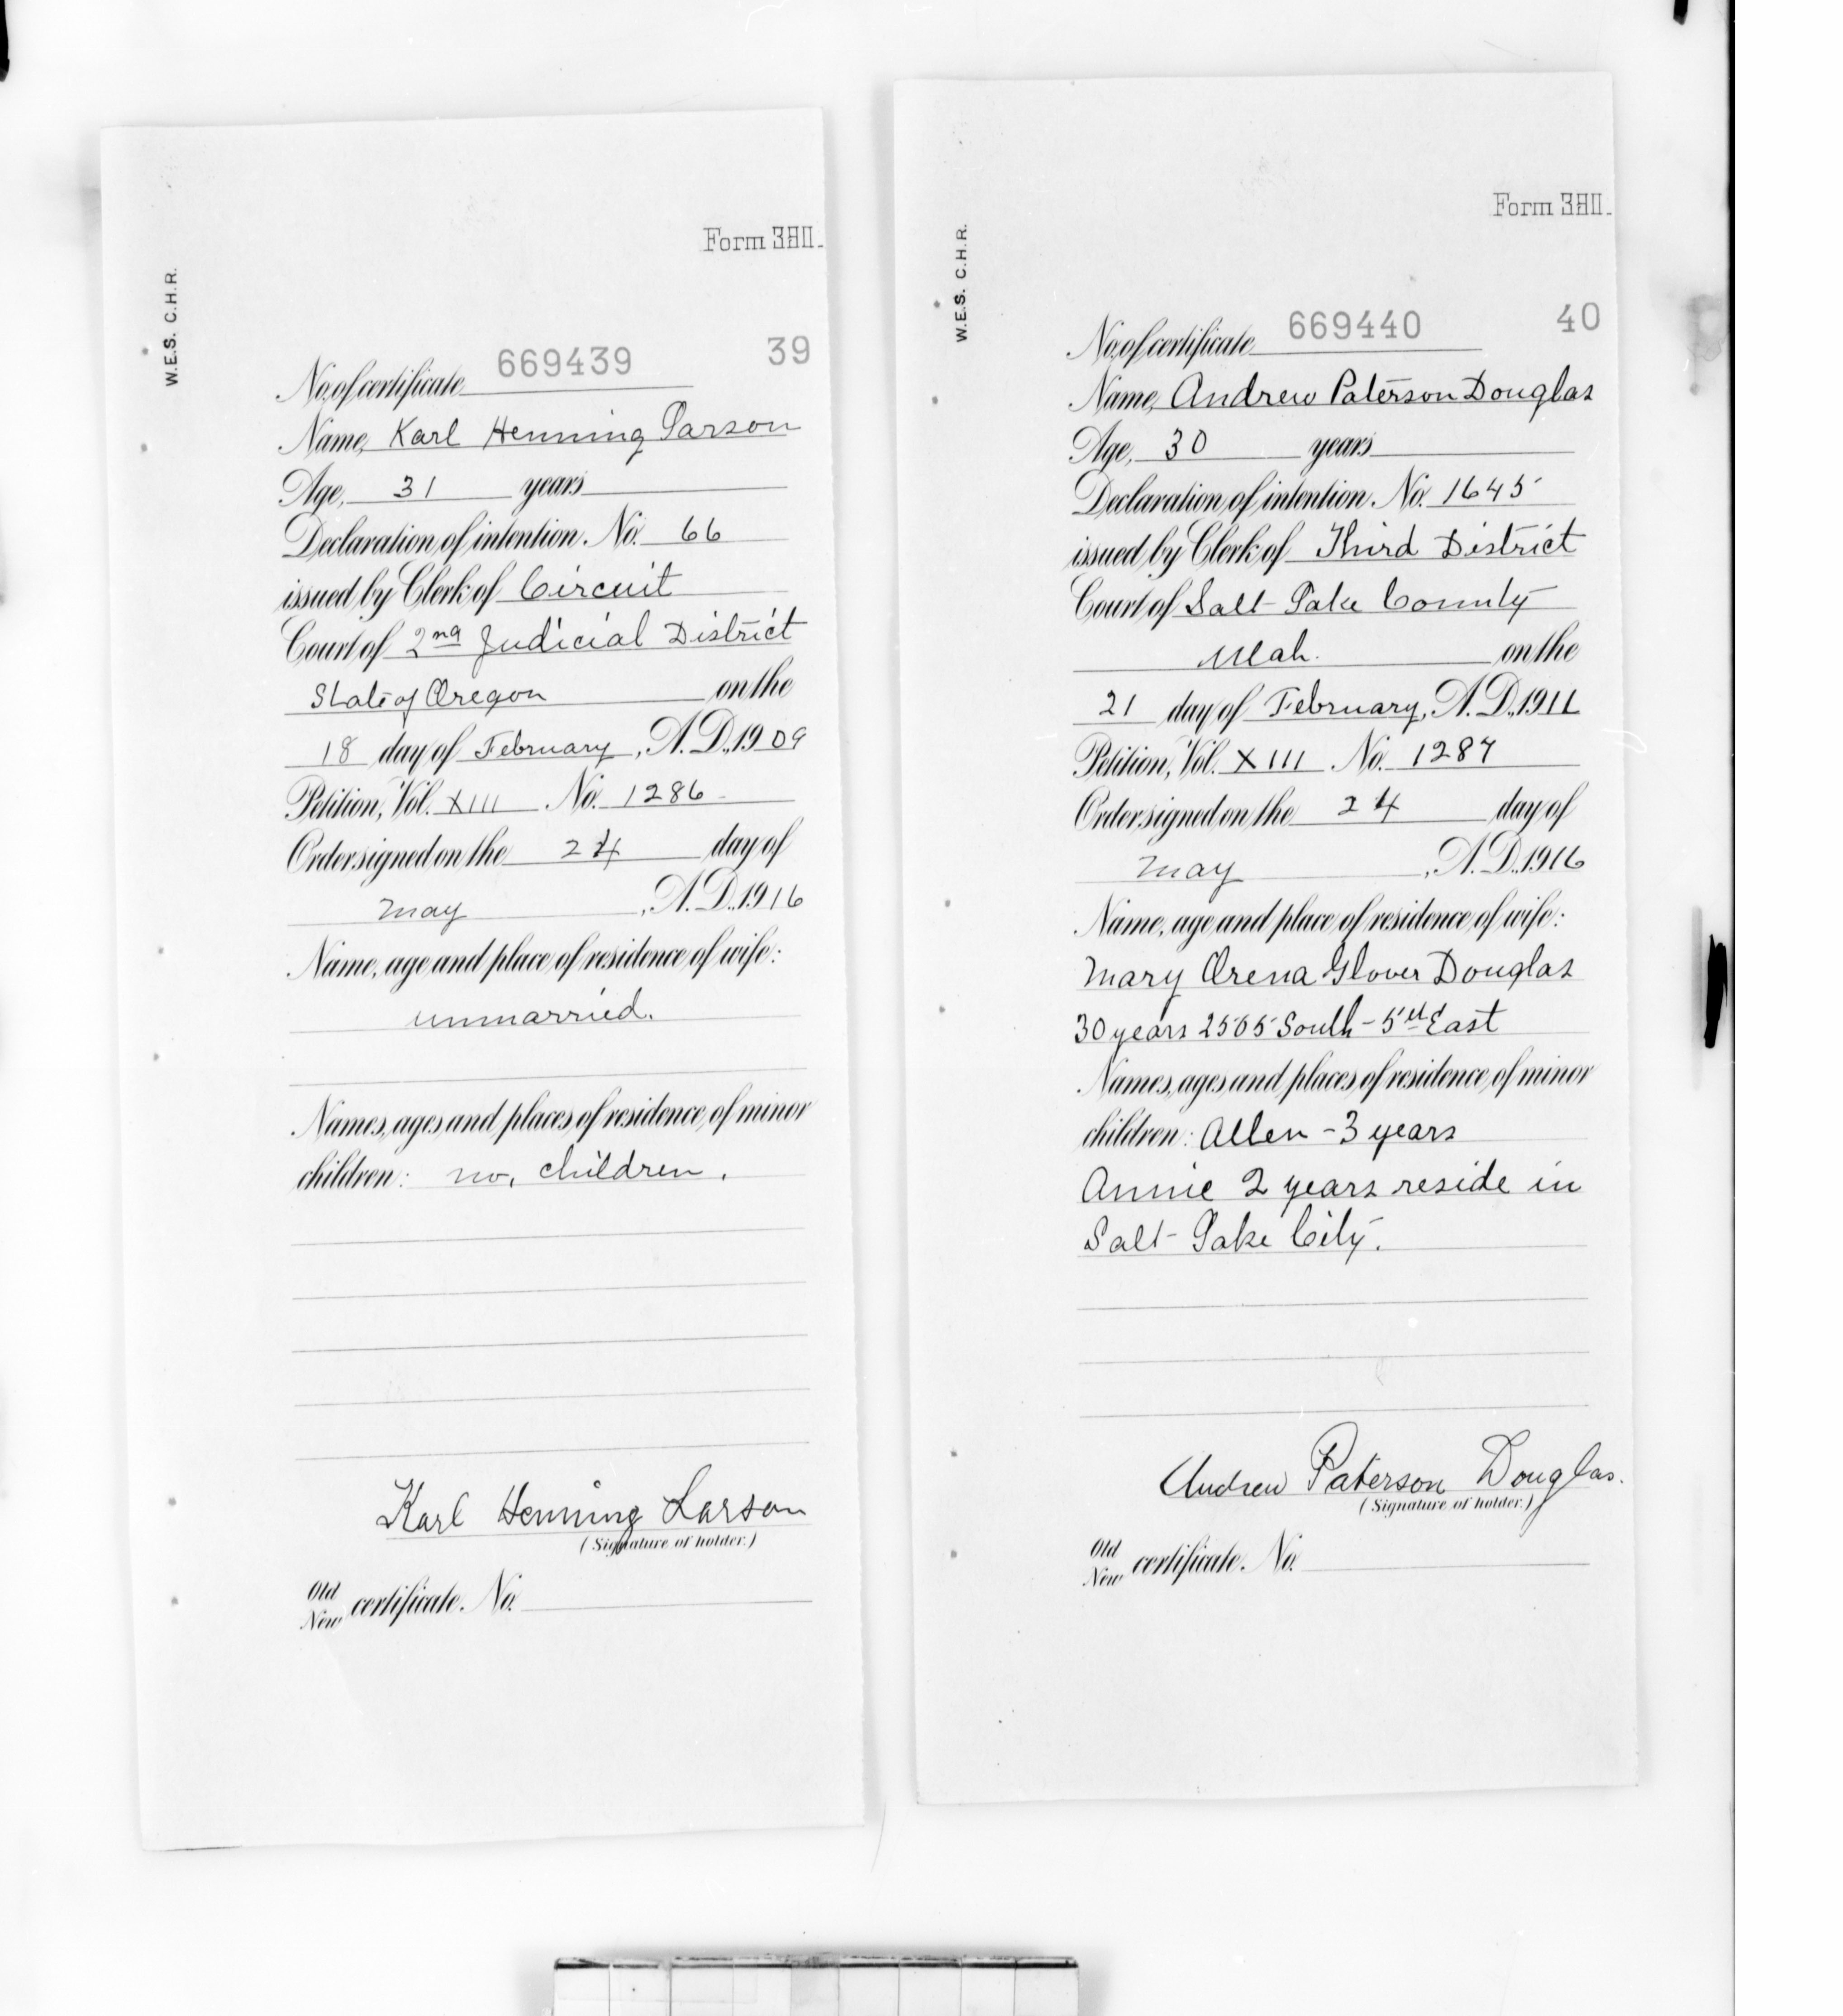 W.E.S. C.H.R.
Form 3811.
No. of certificate 669439 39
Name, Karl Henning Larson
Age, 31 years
Declaration of intention. No. 66
issued by Clerk of Circuit
Court of 2nd Judicial District
State of Oregon on the
18 day of February, A. D., 1909
Petition, Vol. XIII No. 1286
Order signed on the 24 day of
May, A. D., 1916
Name, age and place of residence of wife:
unmarried.
Names, ages and places of residence of minor
children: no, children.
Karl Henning Larson
(Signature of holder.)
Old
New certificate. No.
W.E.S. C.H.R.
Form
No. of certificate 669440 40
Name, Andrew Paterson Douglas
Age, 30 years
Declaration of intention. No. 1645
issued by Clerk of Third District
Court of Salt Lake County
Utah. on the
21 day of February, A. D., 1911
Petition, Vol. XIII No. 1287
Order signed on the 24 day of
May, A. D., 1916
Name, age and place of residence of wife:
Mary Orena Glover Douglas
30 years 2505 South - 5th East
Names, ages and places of residence of minor
children: Allen - 3 years
Annie 2 years reside in
Salt Lake City.
Andrew Paterson Douglas.
(Signature of holder.)
Old
New certificate. No.